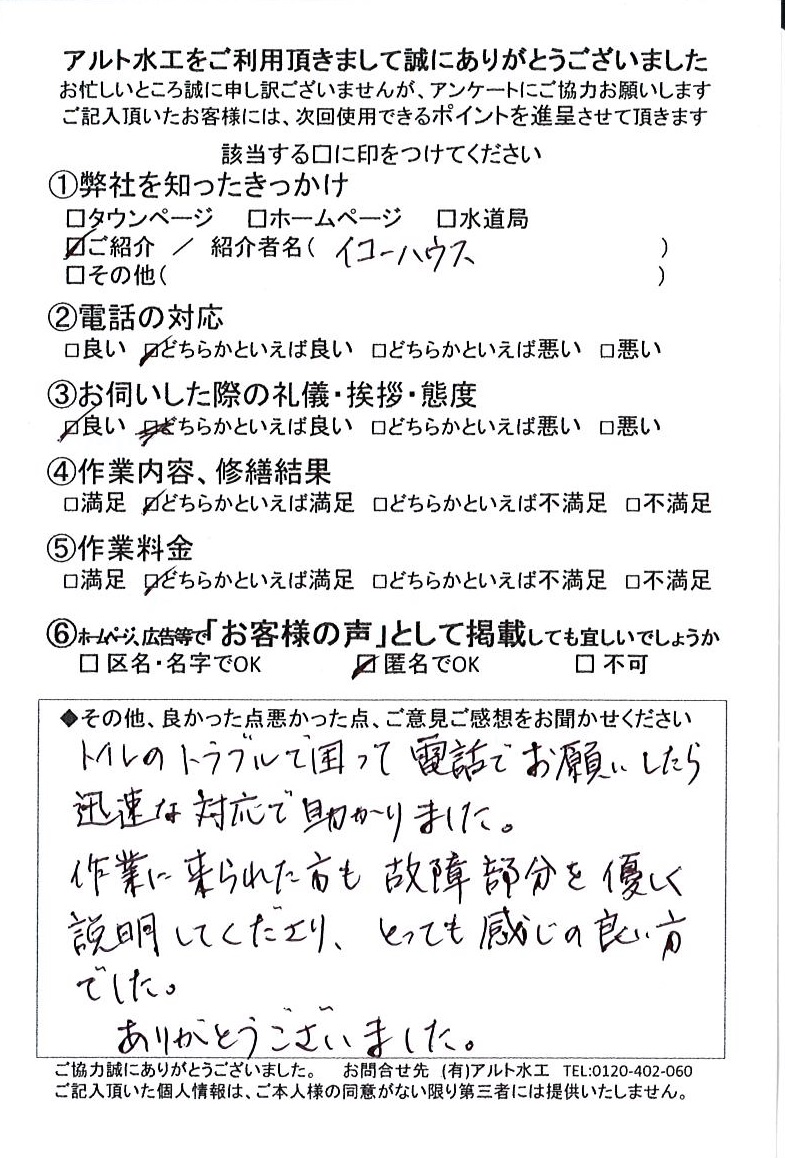 アルト水工をご利用頂きまして誠にありがとうございました
お忙しいところ誠に申し訳ございませんが、アンケートにご協力お願いします
ご記入頂いたお客様には、次回使用できるポイントを進呈させて頂きます
該当する□に印をつけてください
①弊社を知ったきっかけ
□タウンページ □ホームページ □水道局
☑ご紹介 / 紹介者名( イコーハウス )
□その他( )
②電話の対応
□良い ☑どちらかといえば良い □どちらかといえば悪い □悪い
③お伺いした際の礼儀・挨拶・態度
☑良い ☑どちらかといえば良い □どちらかといえば悪い □悪い
④作業内容、修繕結果
□満足 ☑どちらかといえば満足 □どちらかといえば不満足 □不満足
⑤作業料金
□満足 ☑どちらかといえば満足 □どちらかといえば不満足 □不満足
⑥ホームページ、広告等で「お客様の声」として掲載しても宜しいでしょうか
□ 区名・名字でOK ☑ 匿名でOK □ 不可
◆その他、良かった点悪かった点、ご意見ご感想をお聞かせください
トイレのトラブルで困って電話でお願いしたら
迅速な対応で助かりました。
作業に来られた方も故障部分を優しく
説明してくださり、とっても感じの良い方
でした。
ありがとうございました。
ご協力誠にありがとうございました。 お問合せ先 (有)アルト水工 TEL:0120-402-060
ご記入頂いた個人情報は、ご本人様の同意がない限り第三者には提供いたしません。